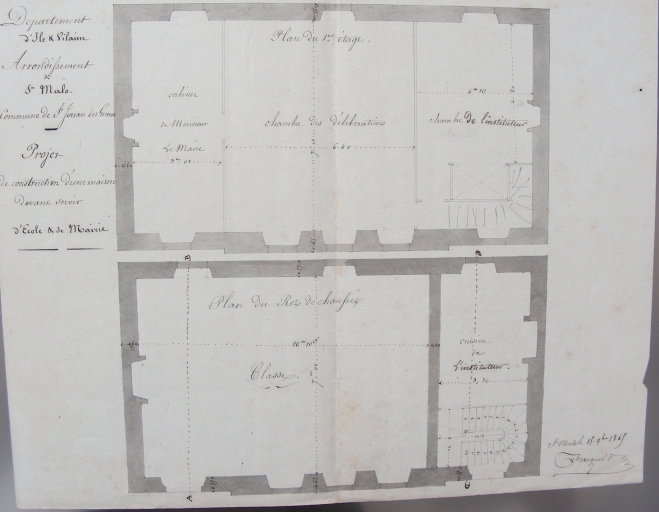 Département
d'Ile & Vilaine
Arrondissement
de
St Malo.
Commune de St
Projet
de construction d'une maison
devant servir
d'Ecole & de Mairie
Plan du 1er étage.
cabinet
de Monsieur
Le Maire
chambre des délibérations
6.40
4m 10
chambre de l'instituteur
Plan du Rez de chaussée
Classe
cuisine
de
L'instituteur.
B
D
A
C
St Malo le 15 9bre 1845